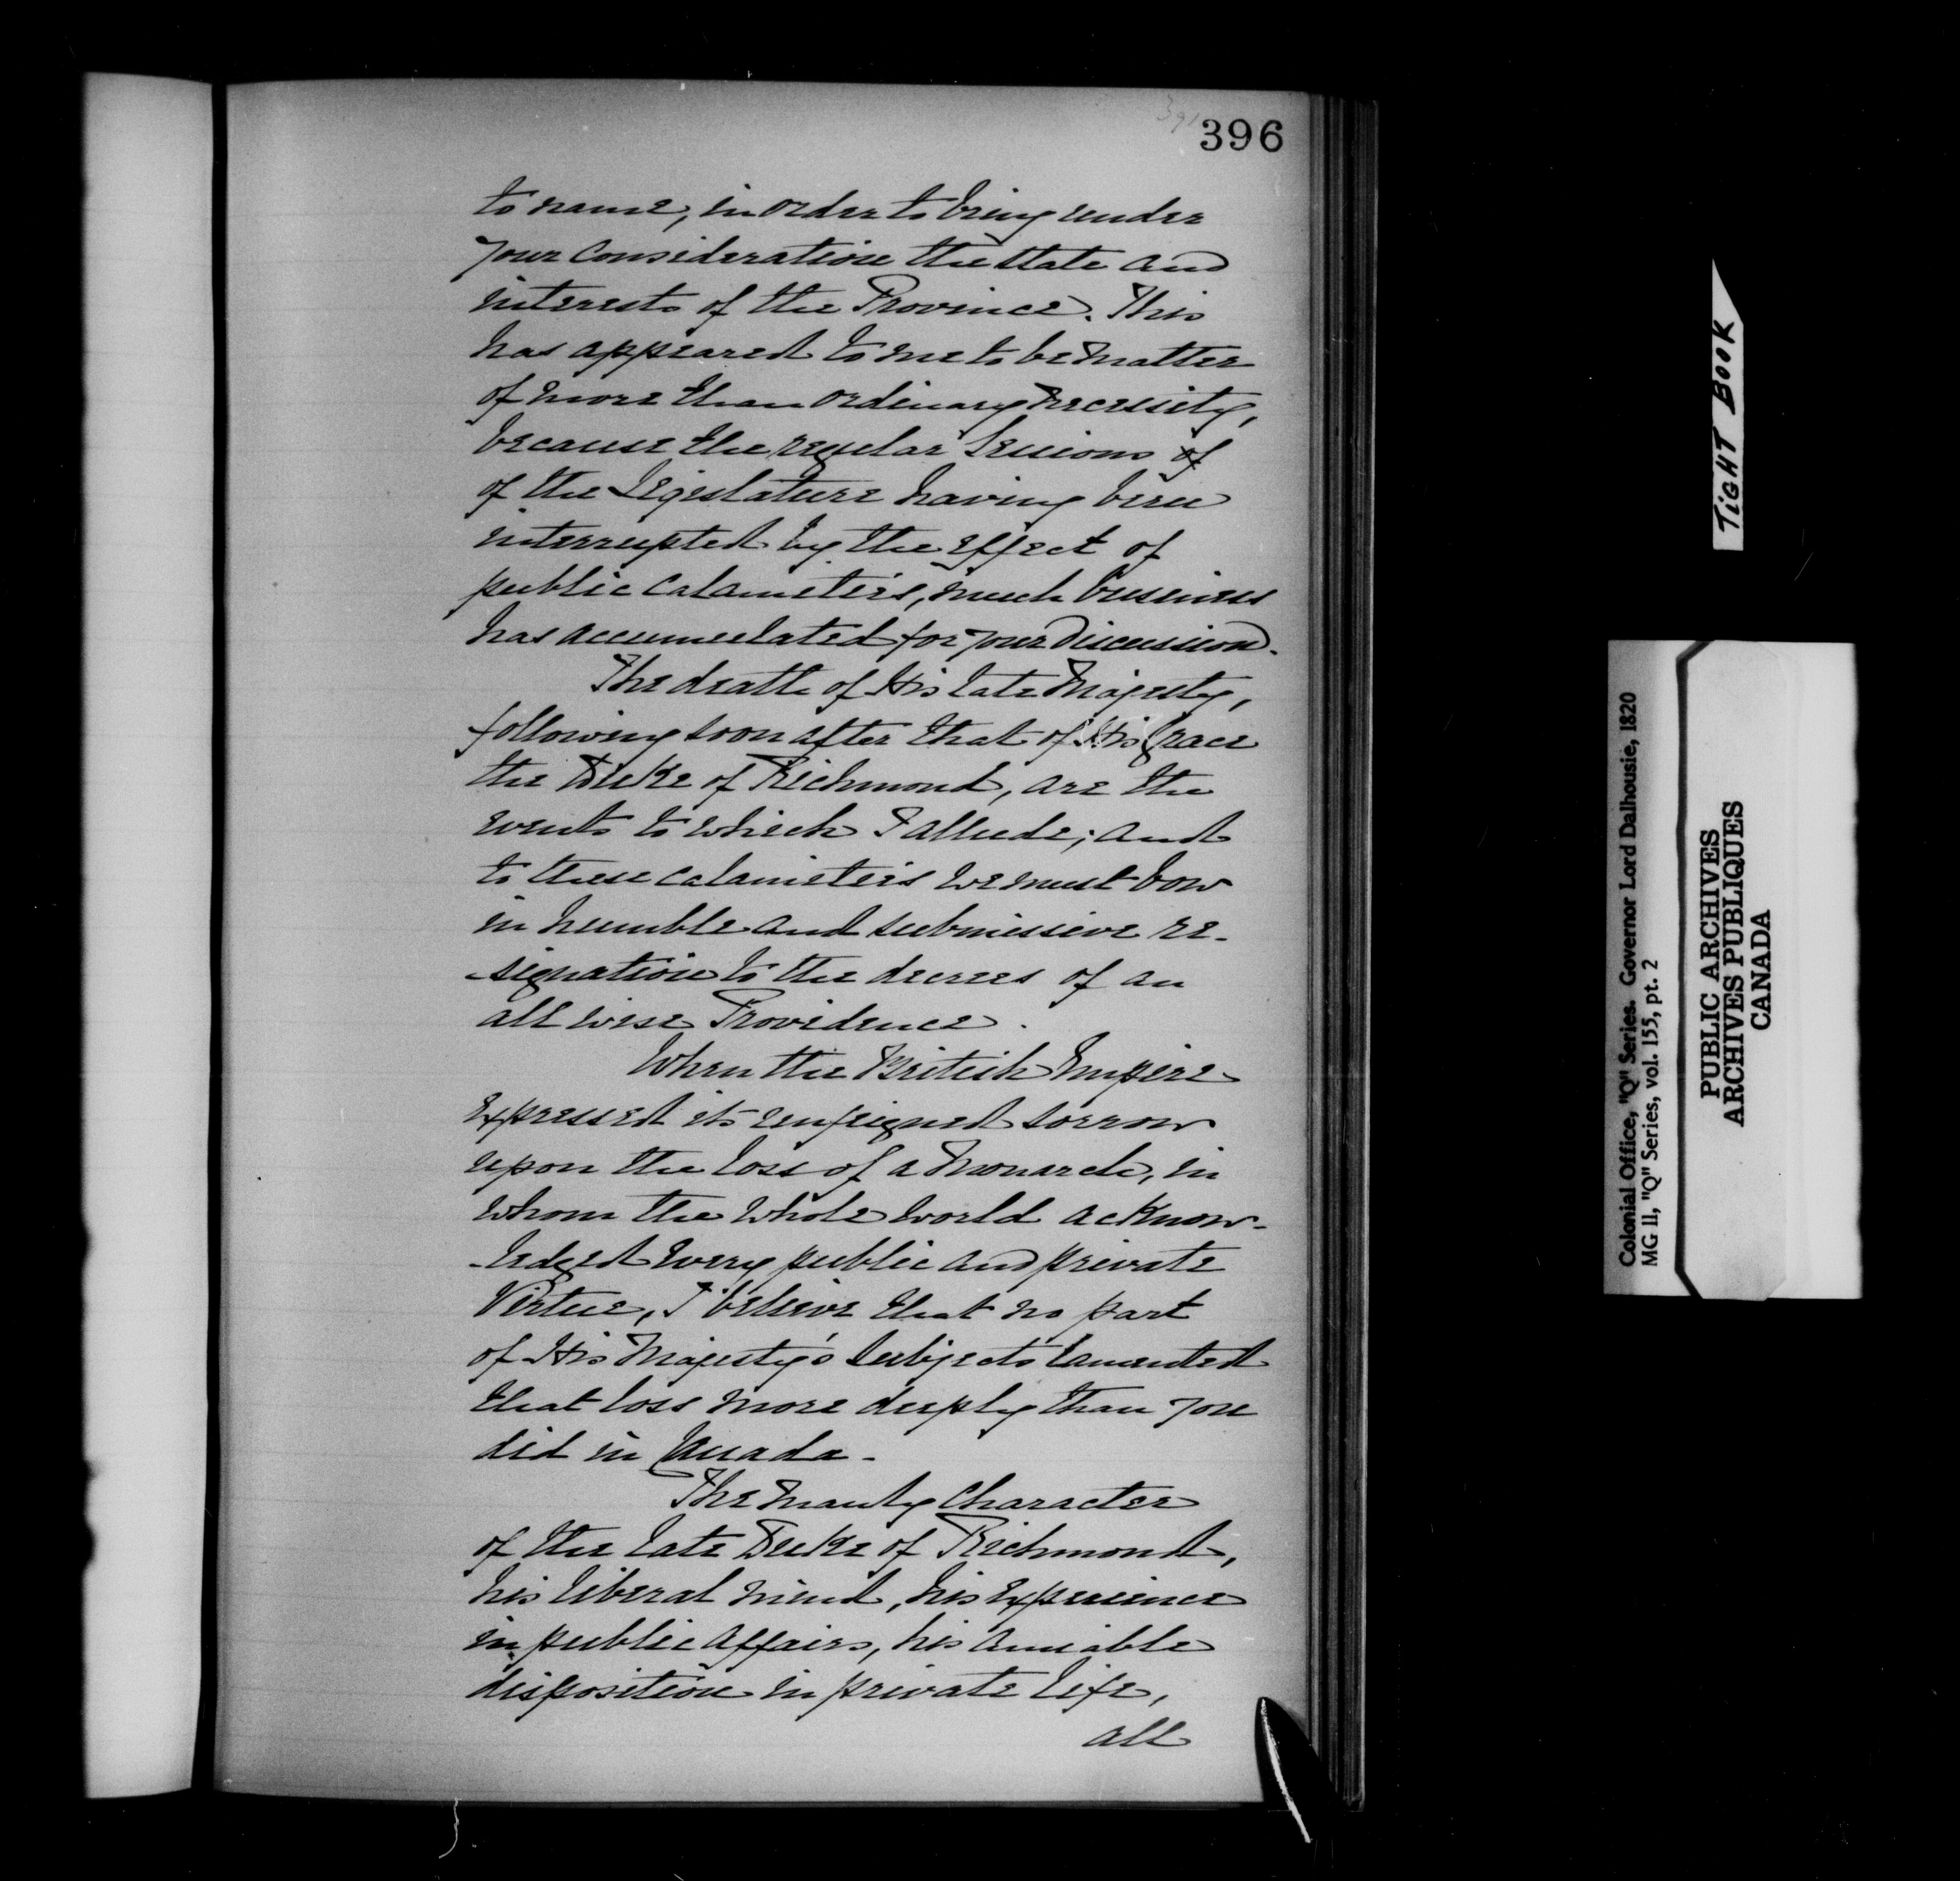 391
396
to name, in order to bring under
your consideration the state and
interests of the Province. This
has appeared to me to be matter
of more than ordinary necessity,
because the regular Sessions of
of the Legislature having been
interrupted by the effect of
public calamities, much business
has accumulated for your discussion.
The death of His late Majesty,
following soon after that of His Grace
the Duke of Richmond, are the
events to which I allude; and
to these calamities we must bow
in humble and submissive re-
-signation to the decrees of an
all wise Providence.
When the British Empire
expressed its unfeigned sorrow
upon the loss of a Monarch, in
whom the whole world acknow-
-ledged every public and private
Virtue, I believe that no part
of His Majesty's Subjects lamented
that loss more deeply than you
did in Canada.
The manly character
of the late Duke of Richmond,
his liberal mind, his experience
in public affairs, his amiable
disposition in private life,
all
TIGHT BOOK
Colonial Office, "Q" Series. Governor Lord Dalhousie, 1820
MG 11, "Q" Series, vol. 155, pt. 2
PUBLIC ARCHIVES
ARCHIVES PUBLIQUES
CANADA